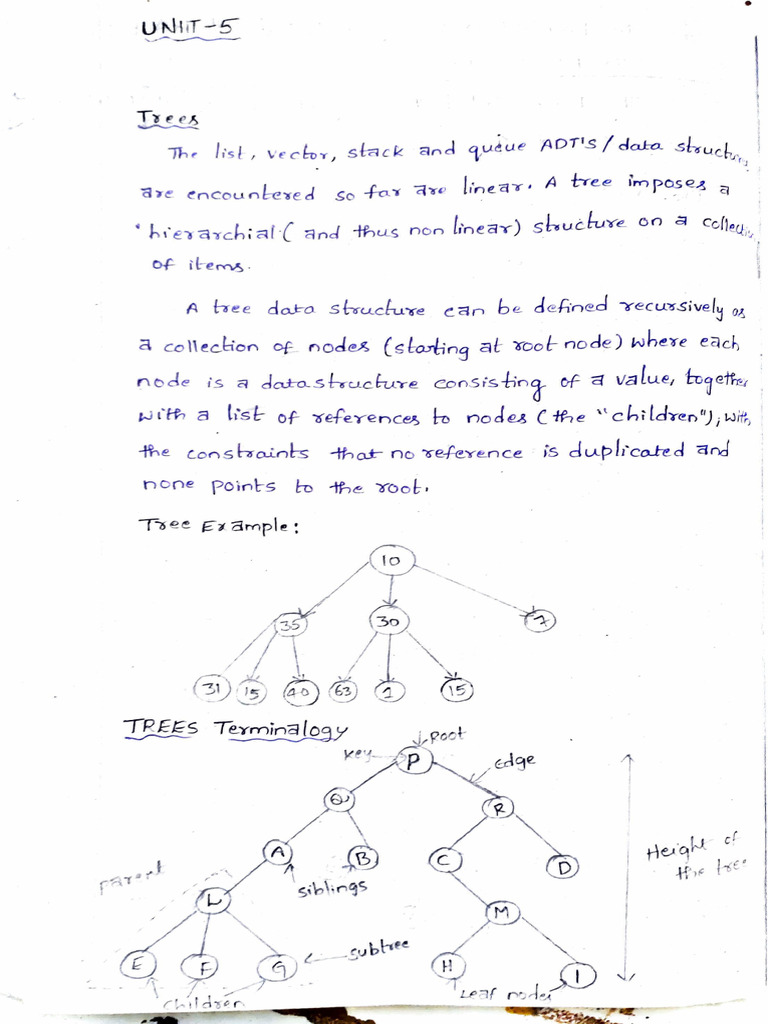 UNIIT-5
Trees
The list, vector, stack and queue ADT'S/data structures
are encountered so far are linear. A tree imposes a
hierarchial (and thus non linear) structure on a collection
of items.
A tree data structure can be defined recursively as
a collection of nodes (starting at root node) where each
node is a datastructure consisting of a value, together
with a list of references to nodes (the "children"), with
the constraints that no reference is duplicated and
none points to the root.
Tree Example:
10
35 30 7
31 15 40 63 1 15
TREES Terminalogy
root
key P edge
Q R
A B C D
Height of
the tree
parent siblings
L M
E F G subtree H I
children Leaf nodes